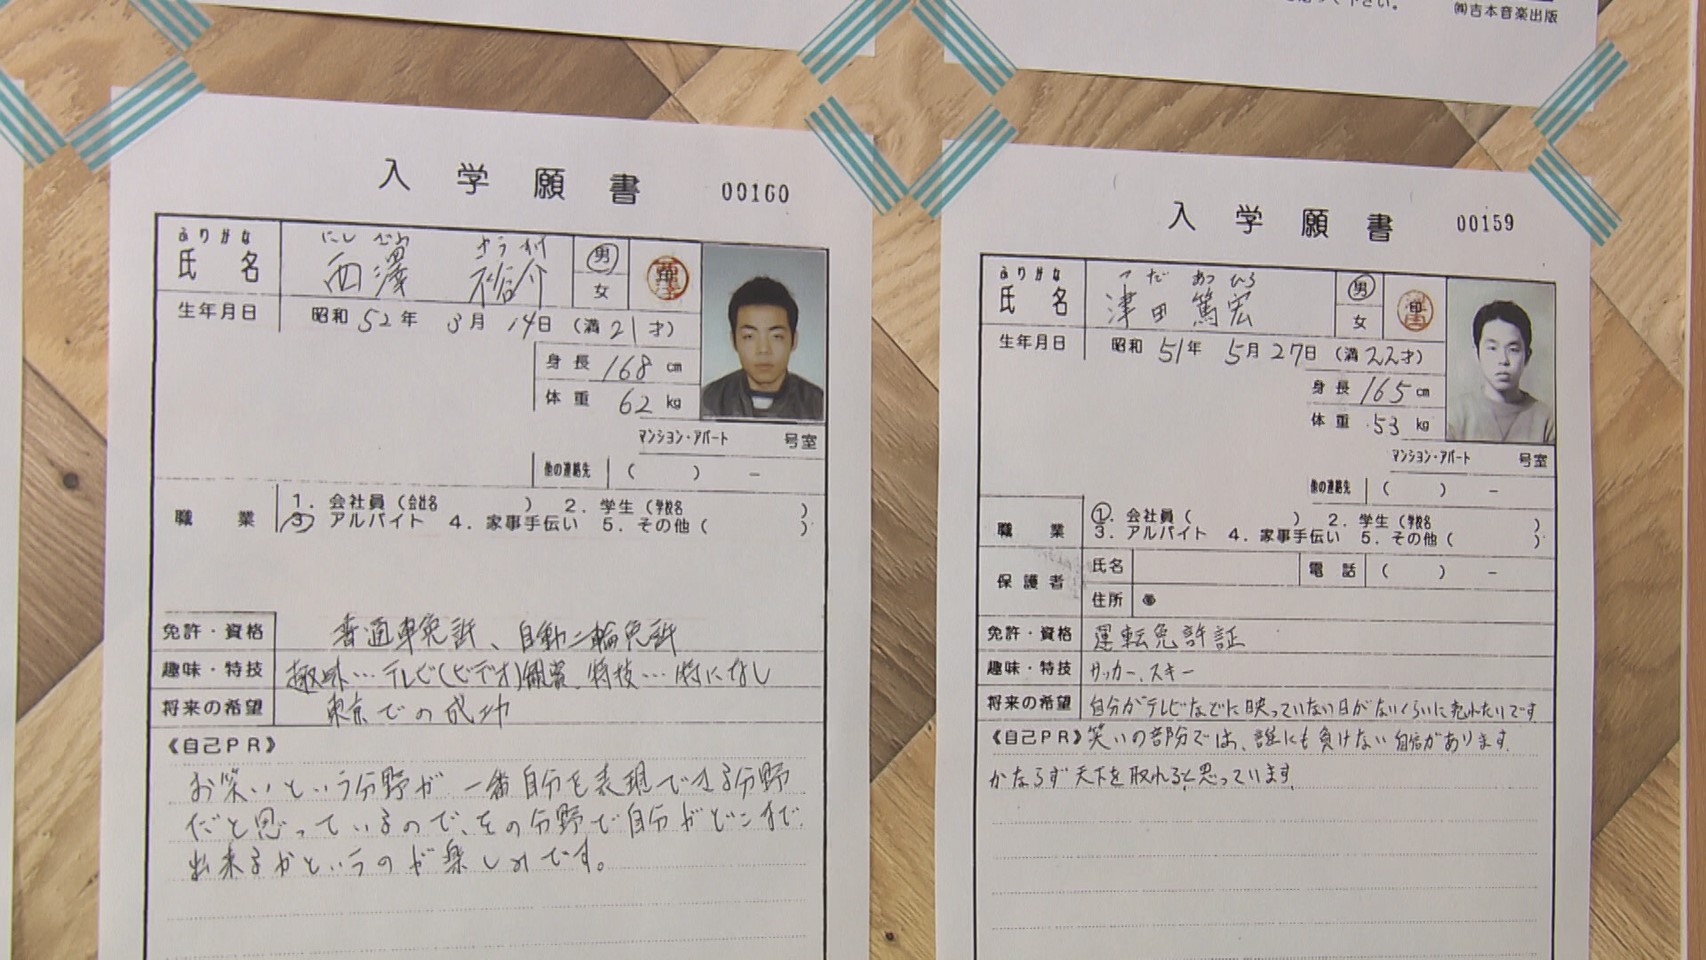 ㈱吉本音楽出版
入学願書 00160
ふりがな にし ざわ ゆう すけ
氏名 西澤 裕介 男 女 印
生年月日 昭和52年 3月 14日 (満21才)
身長 168 cm
体重 62 kg
マンション・アパート 号室
他の連絡先 ( ) －
職業 1. 会社員(会社名 ) 2. 学生(学校名 )
3. アルバイト 4. 家事手伝い 5. その他( )
免許・資格 普通車免許、自動二輪免許
趣味・特技 趣味…テレビ(ビデオ)観賞、特技…特になし
将来の希望 東京での成功
《自己PR》
お笑いという分野が一番自分を表現できる分野
だと思っているので、その分野で自分がどこまで
出来るかというのが楽しみです。
入学願書 00159
ふりがな つだ あつ ひろ
氏名 津田 篤宏 男 女 印
生年月日 昭和51年 5月27日 (満22才)
身長 165 cm
体重 53 kg
マンション・アパート 号室
他の連絡先 ( ) －
職業 1. 会社員( ) 2. 学生(学校名 )
3. アルバイト 4. 家事手伝い 5. その他( )
保護者 氏名 電話 ( ) －
住所
免許・資格 運転免許証
趣味・特技 サッカー、スキー
将来の希望 自分がテレビなどに映っていない日がないくらいに売れたいです
《自己PR》笑いの部分では、誰にも負けない自信があります。
かならず天下を取れると思っています。